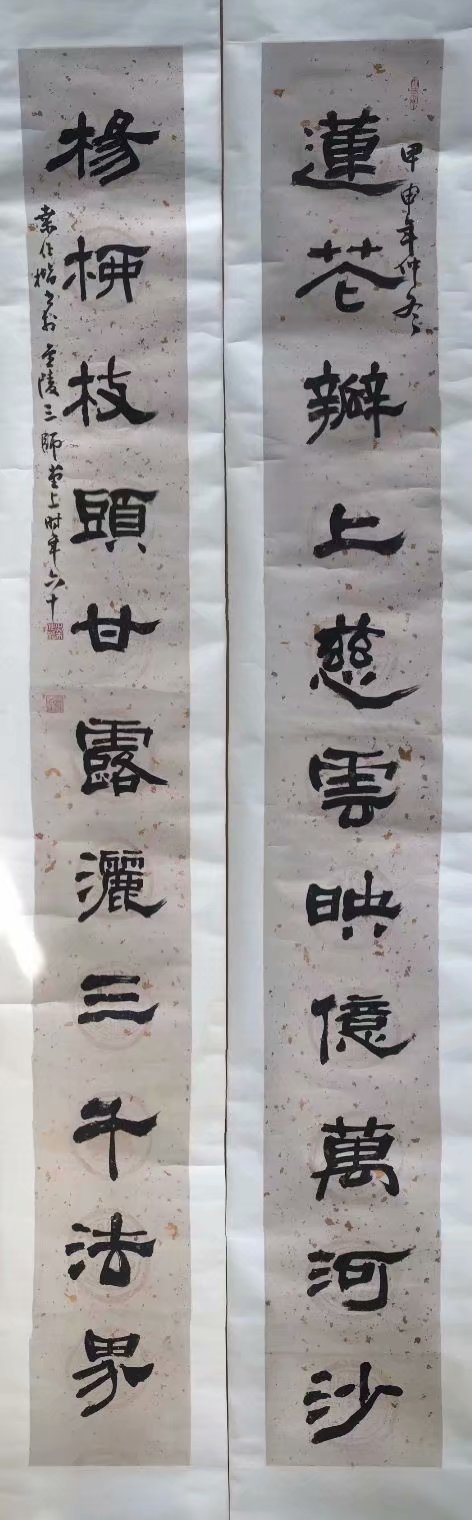 蓮花瓣上慈雲映億萬河沙
甲申年仲冬
楊柳枝頭甘露灑三千法界
三師堂上時年六十